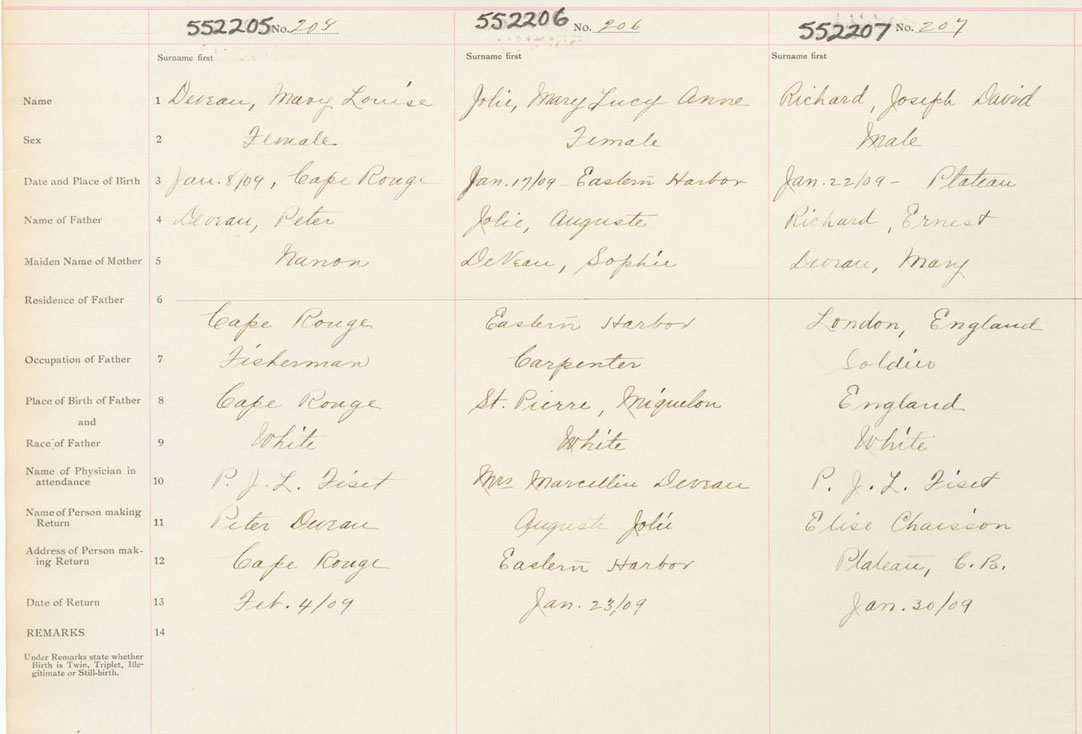 552205 No. 205 552206 No. 206 552207 No. 207
Surname first Surname first Surname first
Name 1 Deveau, Mary Louise Jolie, Mary Lucy Anne Richard, Joseph David
Sex 2 Female Female Male
Date and Place of Birth 3 Jan. 8/09, Cape Rouge Jan. 17/09 - Eastern Harbor Jan. 22/09 - Plateau
Name of Father 4 Deveau, Peter Jolie, Auguste Richard, Ernest
Maiden Name of Mother 5 DeVeau, Sophie Deveau, Mary
Residence of Father 6
Cape Rouge Eastern Harbor London, England
Occupation of Father 7 Fisherman Carpenter Soldier
Place of Birth of Father 8 Cape Rouge St. Pierre, Miquelon England
and
Race of Father 9 White White White
Name of Physician in
attendance 10 P. J. L. Fiset Mrs Marcellin Deveau P. J. L. Fiset
Name of Person making
Return 11 Peter Deveau Auguste Jolie Elise Chaisson
Address of Person mak-
ing Return 12 Cape Rouge Eastern Harbor Plateau, C. B.
Date of Return 13 Feb. 4/09 Jan. 23/09 Jan. 30/09
REMARKS 14
Under Remarks state whether
Birth is Twin, Triplet, Ille-
gitimate or Still-birth.